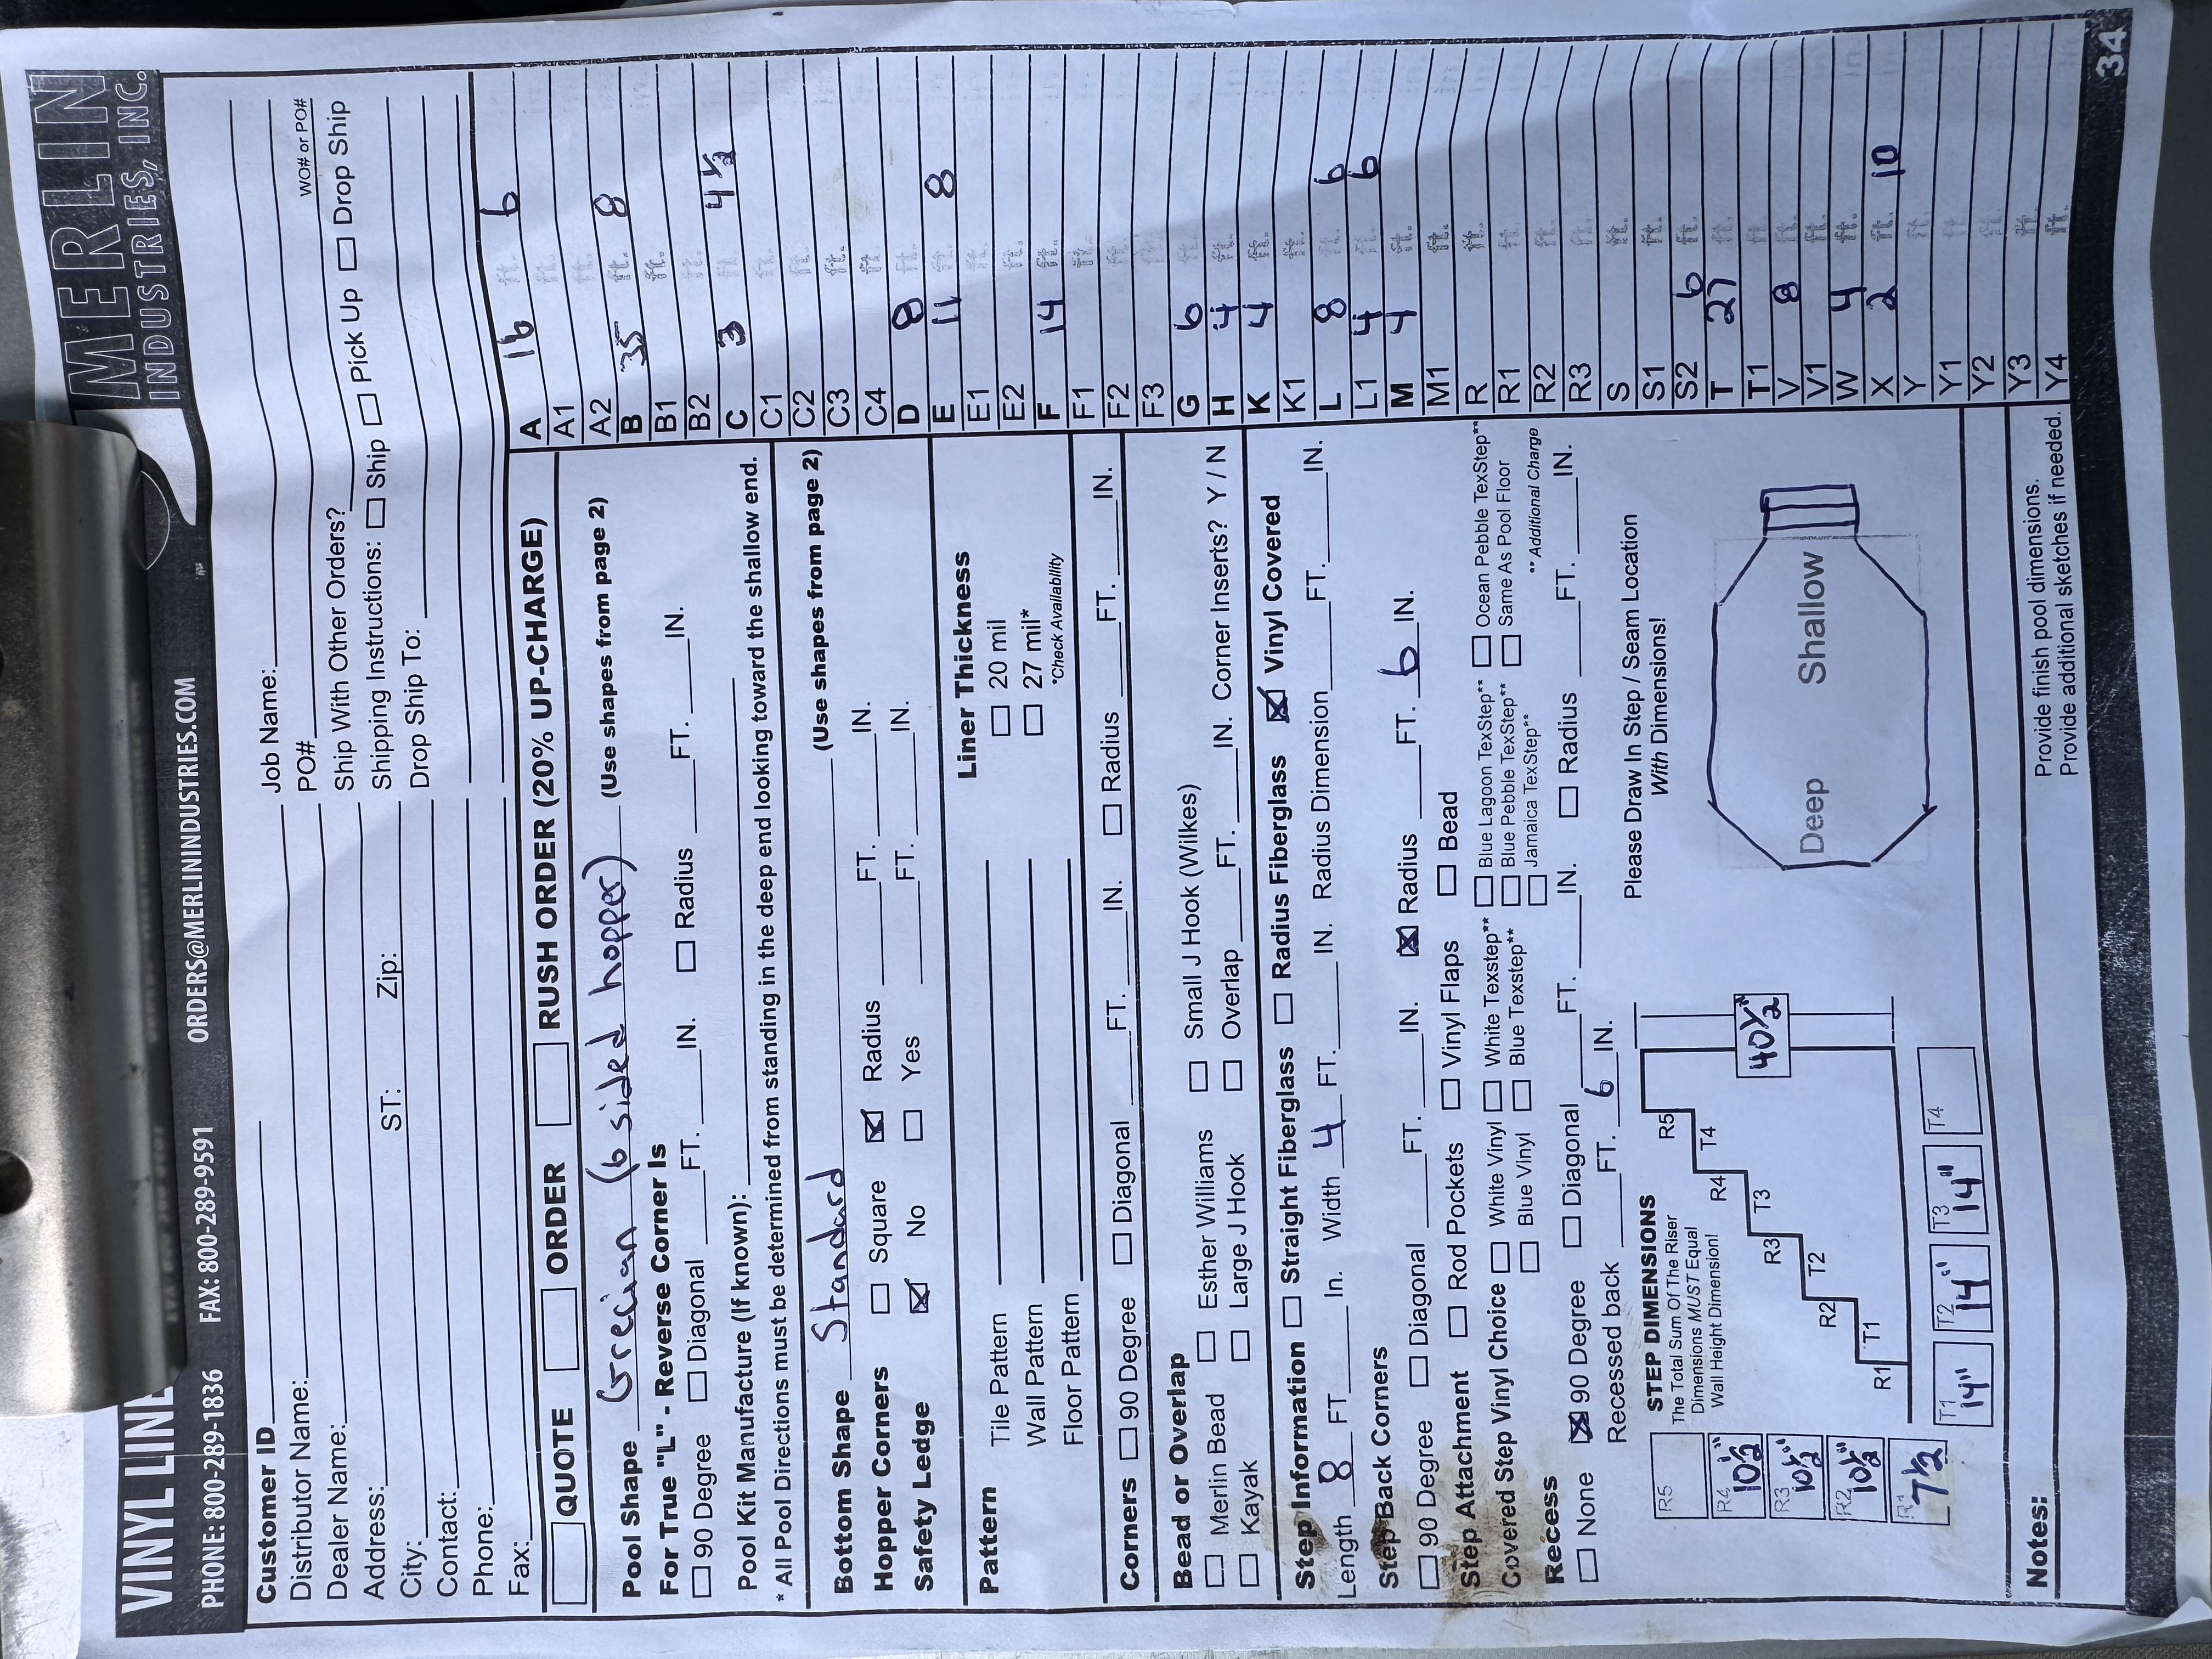 VINYL LINE
MERLIN
INDUSTRIES, INC.
PHONE: 800-289-1836 FAX: 800-289-9591 ORDERS@MERLININDUSTRIES.COM
Customer ID
Distributor Name:
Dealer Name:
Address:
City: ST: Zip:
Contact:
Phone:
Fax:
Job Name:
PO# WO# or PO#
Ship With Other Orders?
Shipping Instructions: ☐ Ship ☐ Pick Up ☐ Drop Ship
Drop Ship To:
☐ QUOTE ☐ ORDER ☐ RUSH ORDER (20% UP-CHARGE)
Pool Shape Grecian (6 sided hopper) (Use shapes from page 2)
For True "L" - Reverse Corner Is
☐ 90 Degree ☐ Diagonal FT. IN. ☐ Radius FT. IN.
Pool Kit Manufacture (If known):
* All Pool Directions must be determined from standing in the deep end looking toward the shallow end.
Bottom Shape Standard (Use shapes from page 2)
Hopper Corners ☐ Square ☒ Radius FT. IN.
Safety Ledge ☒ No ☐ Yes FT. IN.
Pattern
Tile Pattern
Wall Pattern
Floor Pattern
Liner Thickness
☐ 20 mil
☐ 27 mil*
*Check Availability
Corners ☐ 90 Degree ☐ Diagonal FT. IN. ☐ Radius FT. IN.
Bead or Overlap
☐ Merlin Bead ☐ Esther Williams ☐ Small J Hook (Wilkes)
☐ Kayak ☐ Large J Hook ☐ Overlap FT. IN. Corner Inserts? Y / N
Step Information ☐ Straight Fiberglass ☐ Radius Fiberglass ☒ Vinyl Covered
Length 8 FT In. Width 4 FT. IN. Radius Dimension FT. IN.
Step Back Corners
☐ 90 Degree ☐ Diagonal FT. IN. ☒ Radius FT. 6 IN.
Step Attachment ☐ Rod Pockets ☐ Vinyl Flaps ☐ Bead
Covered Step Vinyl Choice ☐ White Vinyl ☐ White Texstep** ☐ Blue Lagoon TexStep** ☐ Ocean Pebble TexStep**
☐ Blue Vinyl ☐ Blue Texstep** ☐ Blue Pebble TexStep** ☐ Same As Pool Floor
☐ Jamaica TexStep** ** Additional Charge
Recess
☐ None ☒ 90 Degree ☐ Diagonal FT. IN. ☐ Radius FT. IN.
Recessed back FT. 6 IN.
STEP DIMENSIONS
The Total Sum Of The Riser
Dimensions MUST Equal
Wall Height Dimension!
R5
R4 10½"
R3 10½"
R2 10½"
R1 7½
T1 14"
T2 14"
T3 14"
T4
R1 T1 R2 T2 R3 T3 R4 T4 R5
40½"
Please Draw In Step / Seam Location
With Dimensions!
Deep Shallow
Provide finish pool dimensions.
Provide additional sketches if needed.
Notes:
A 16 ft. 6
A1 ft.
A2 ft.
B 35 ft. 8
B1 ft.
B2 ft.
C 3 ft. 4½
C1 ft.
C2 ft.
C3 ft.
C4 ft.
D 8 ft.
E 11 ft. 8
E1 ft.
E2 ft.
F 14 ft.
F1 ft.
F2 ft.
F3 ft.
G 6 ft.
H 4 ft.
K 4 ft.
K1 ft.
L 8 ft. 6
L1 4 ft. 6
M 4 ft.
M1 ft.
R ft.
R1 ft.
R2 ft.
R3 ft.
S ft.
S1 ft.
S2 6 ft.
T 27 ft.
T1 ft.
V 8 ft.
V1 ft.
W 4 ft.
X 2 ft. 10
Y ft.
Y1 ft.
Y2 ft.
Y3 ft.
Y4 ft.
34